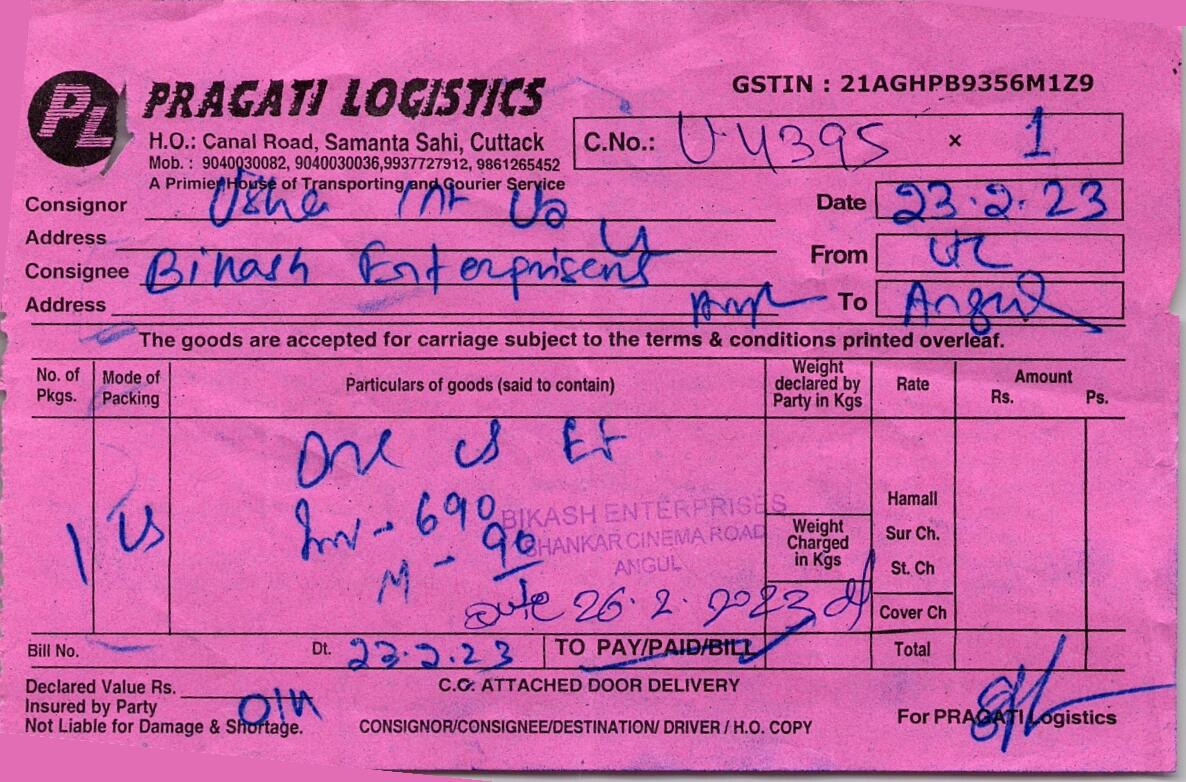 PL PRAGATI LOGISTICS
GSTIN : 21AGHPB9356M1Z9
H.O.: Canal Road, Samanta Sahi, Cuttack
Mob. : 9040030082, 9040030036,9937727912, 9861265452
A Primier House of Transporting and Courier Service
C.No.: U-4395 × 1
Consignor Usha Int
Date 23.2.23
Address
From
Consignee Bikash Enterprisens
Address
To Angul
The goods are accepted for carriage subject to the terms & conditions printed overleaf.
No. of Pkgs.
Mode of Packing
Particulars of goods (said to contain)
Weight declared by Party in Kgs
Rate
Amount
Rs. Ps.
One
Inv - 690
M - 90
1
BIKASH ENTERPRISES
SHANKAR CINEMA ROAD
ANGUL
Date 26.2.2023
Weight Charged in Kgs
Hamall
Sur Ch.
St. Ch
Cover Ch
Bill No. Dt. 23.2.23 TO PAY/PAID/BILL Total
Declared Value Rs.
Insured by Party
Not Liable for Damage & Shortage.
C.C. ATTACHED DOOR DELIVERY
CONSIGNOR/CONSIGNEE/DESTINATION/ DRIVER / H.O. COPY
For PRAGATI Logistics